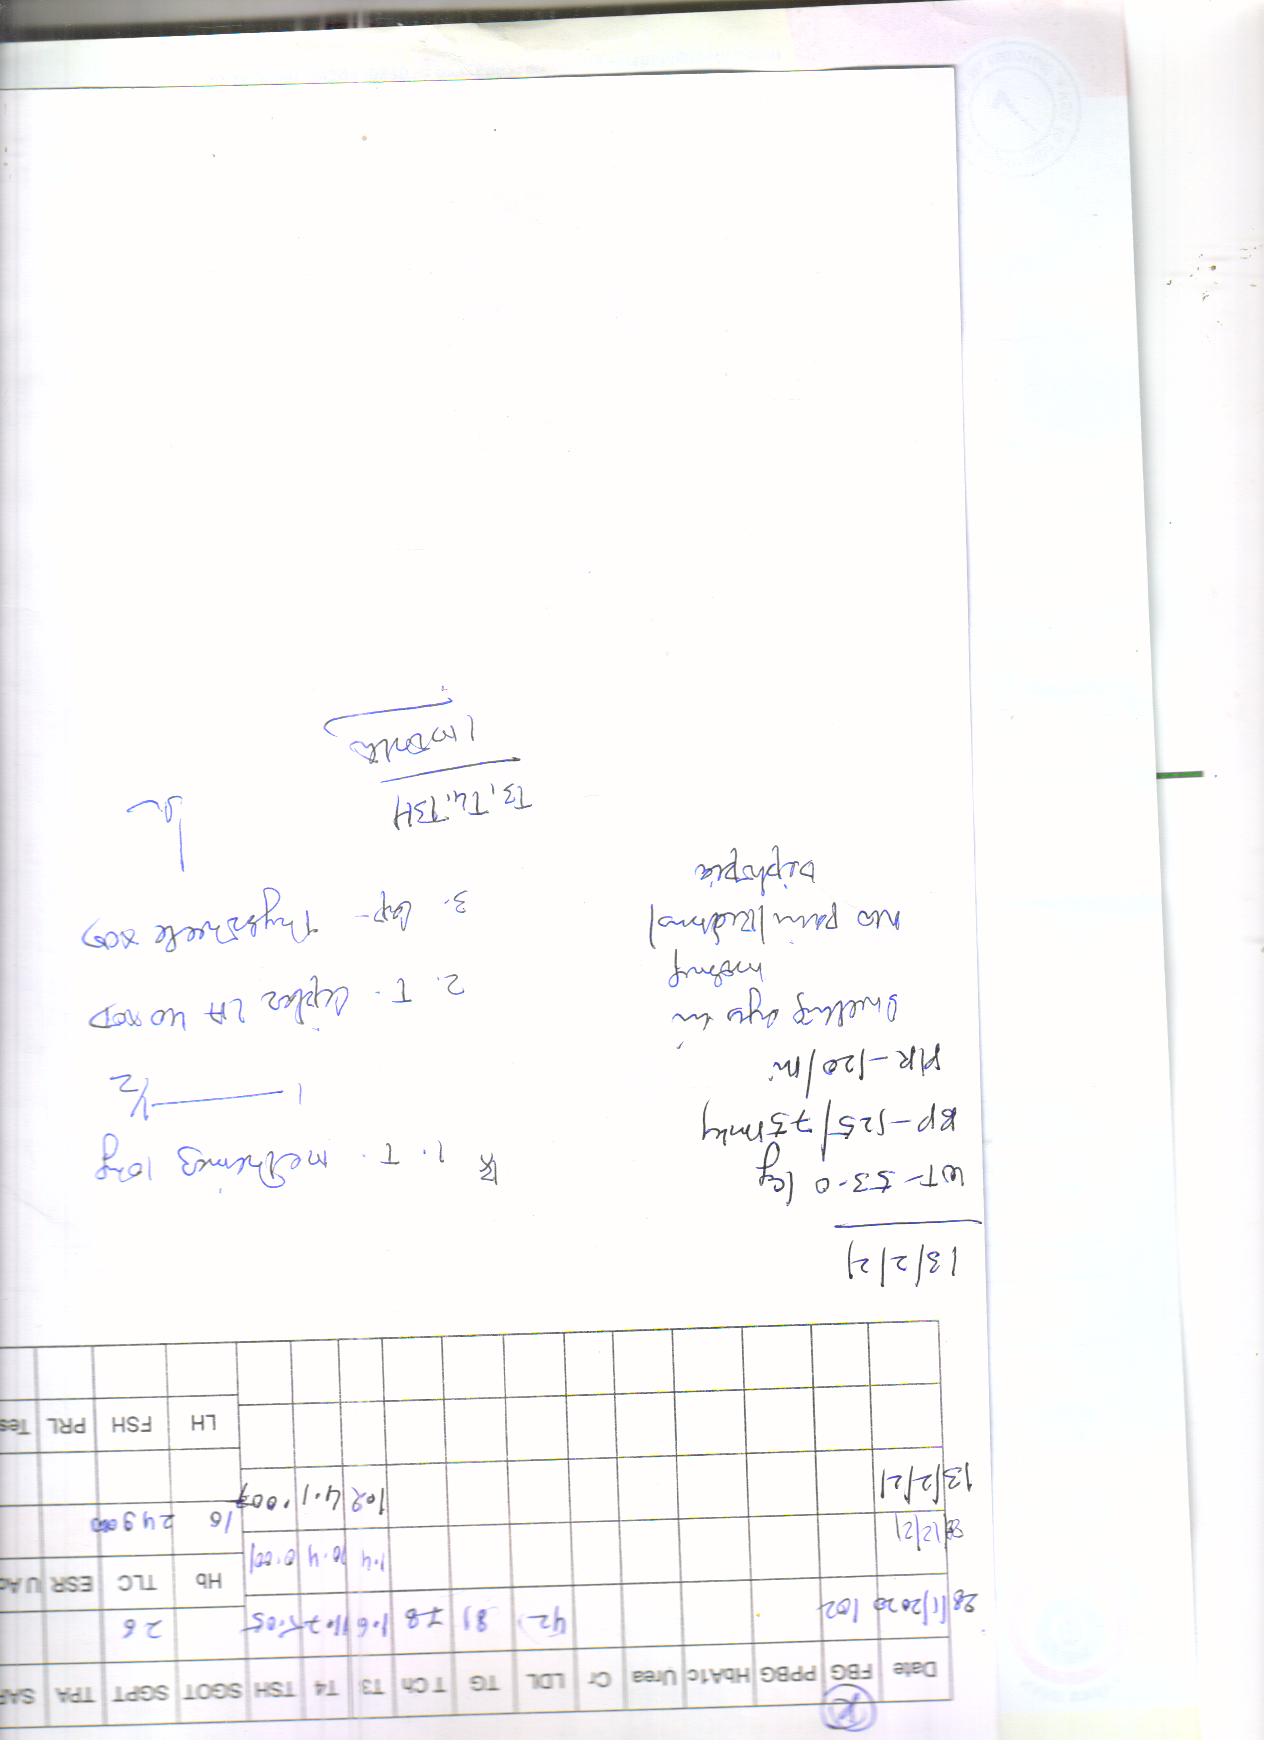 Date FBG PPBG HbA1c Urea Cr LDL TG TCh T3 T4 TSH SGOT SGPT TPA SAP
28/1/2020 102 42 81 78 1.6 11.7 5.05 26
Hb TLC ESR U Ac
/2/21 1.4 10.4 0.001
16 24900
13/2/21 1.02 4.1 .007
LH FSH PRL Tes
13/2/21
WT-53.0 kg
BP-125/75mmHg
P/R-120/m
Swelling eyes in
morning
No pain/Redness/
Diplopia
1. T. methimez 10mg
1 — 1/2
2. T. Ciplar LA 40 mg OD
3. Cap-
T3, T4, TSH
1 month